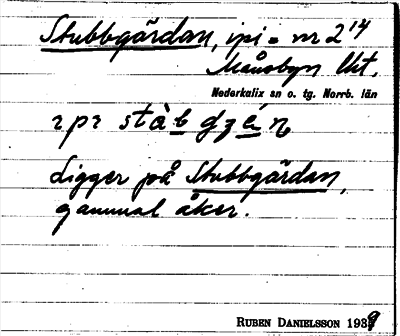 Stubbgärdan, ipi = nr 2¹⁴
Månsbyn Üt.
Nederkalix sn o. tg. Norrb. län
ɿpɿ stàb gzán
Ligger på Stubbgärdan,
gammal åker.
RUBEN DANIELSSON 1939